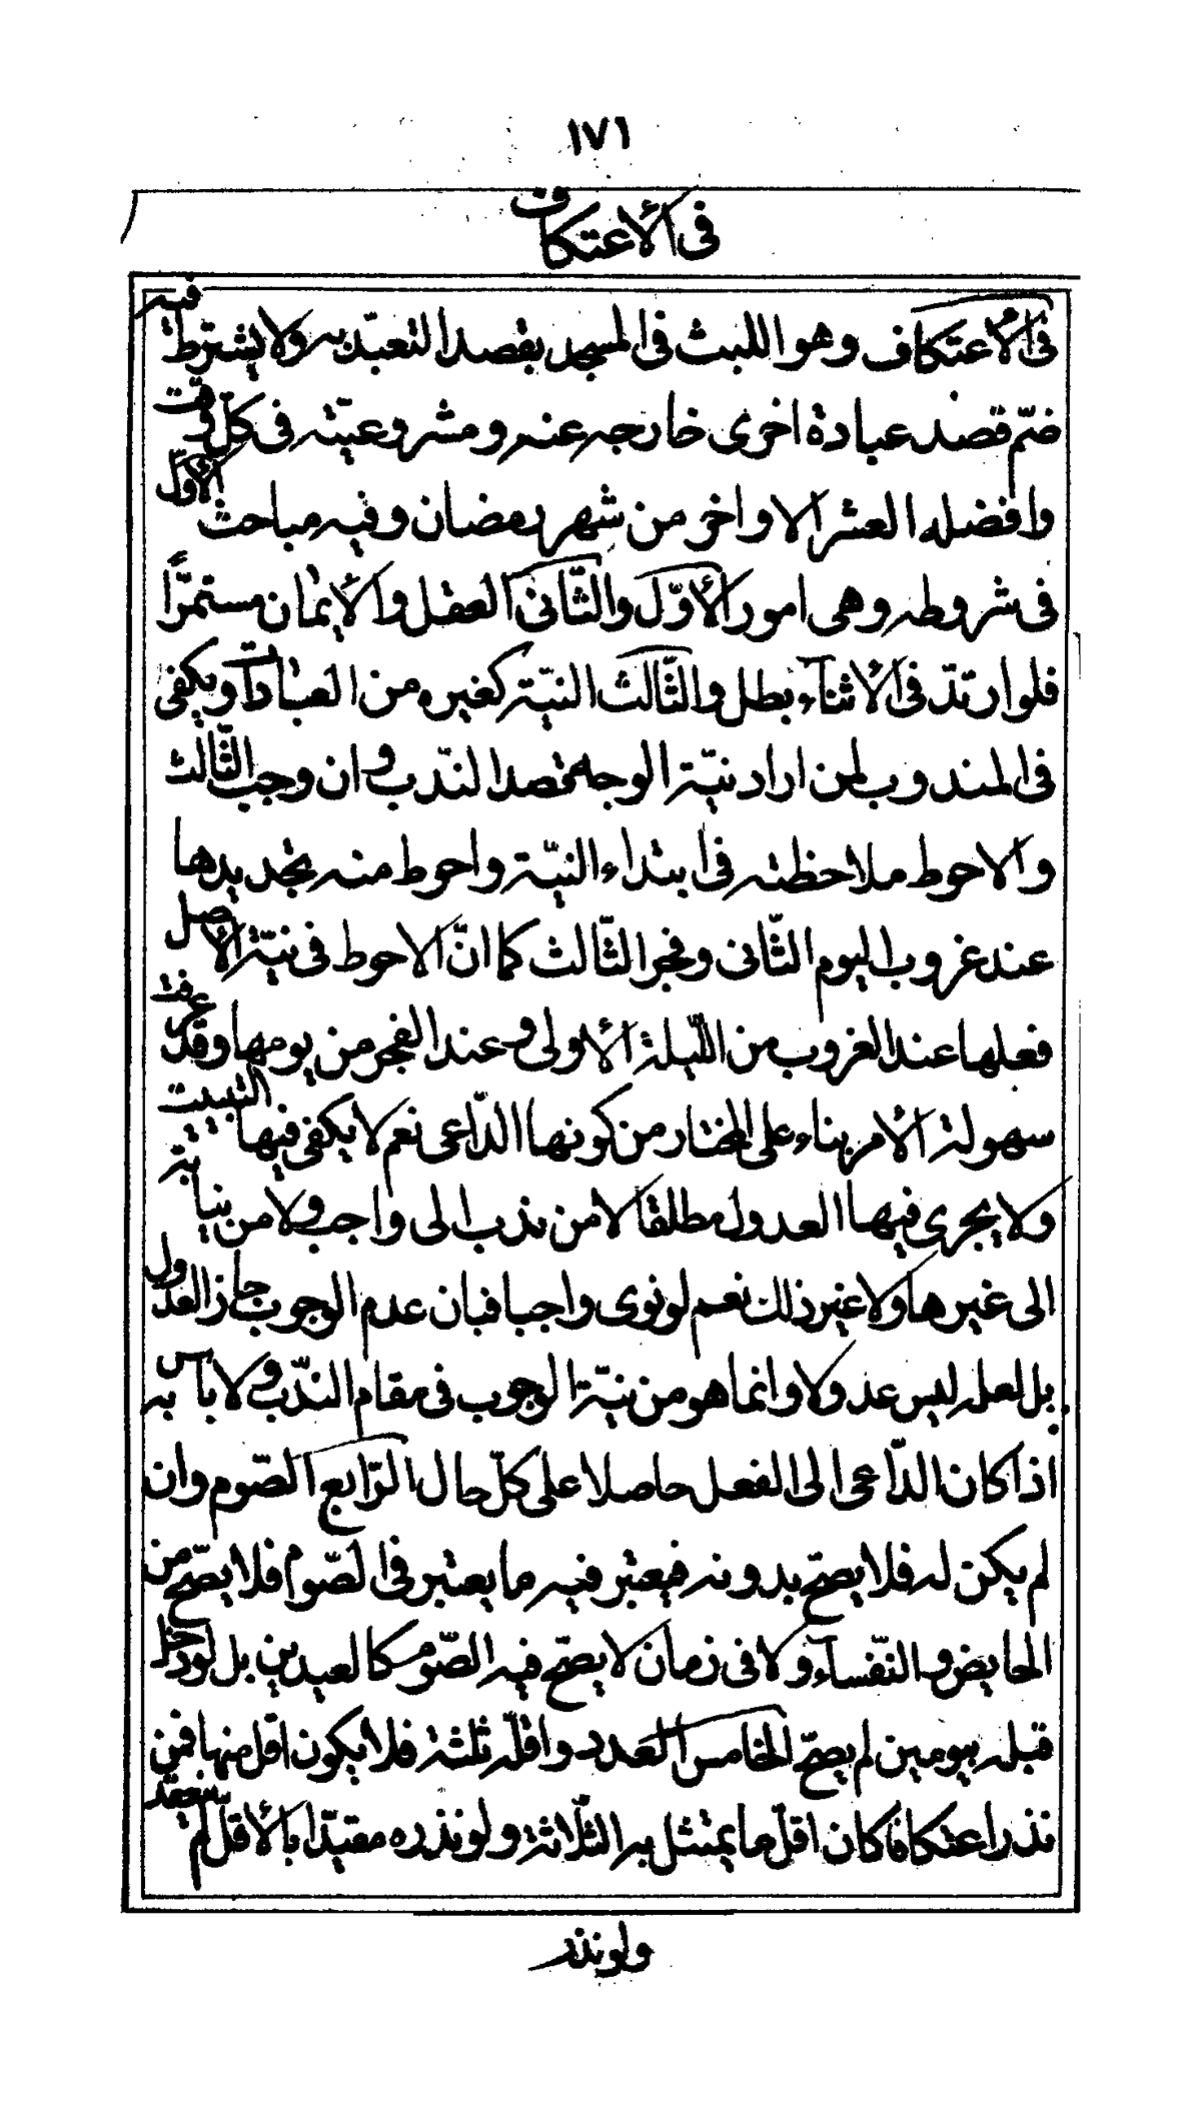 ١٧١
فى الأعتكاف
فى الأعتكاف وهو اللبث فى المسجد بقصد التعبّد به ولا يشترط فيه
ضمّ قصد عبادة اخرى خارجه عنه ومشروعيّته فى كلّ وقت
وافضله العشر الاواخر من شهر رمضان وفيه مباحث الأوّل
فى شروطه وهى امور الأوّل والثّانى العقل والأيمان مستمرّاً
فلو ارتدّ فى الأثناء بطل والثّالث النيّة كغيره من العبادات ويكفى
فى المندوب لمن اراد نيّة الوجه قصد النّدب وان وجب الثّالث
والاحوط ملاحظته فى ابتداء النيّة واحوط منه تجديدها
عند غروب اليوم الثّانى وفجر الثّالث كما انّ الاحوط فى نيّة الأصل
فعلها عند الغروب من اللّيلة الأولى وعند الفجر من يومها وقد عرفت
سهولة الأمر بناء على المختار من كونها الدّاعى نعم لا يكفى فيها التبييت
ولا يجرى فيها العدول مطلقا لا من ندب الى واجب ولا من نيابة
الى غيرها ولا غير ذلك نعم لو نوى واجبا فبان عدم الوجوب جاز العدول
بل لعله ليس عدولا وانما هو من نيّة الوجوب فى مقام النّدب ولا باس به
اذا كان الدّاعى الى الفعل حاصلا على كلّ حال الرّابع الصّوم وان
لم يكن له فلا يصحّ بدونه فيعتبر فيه ما يعتبر فى الصّوم فلا يصحّ من
الحايض والنّفساء ولا فى زمان لا يصحّ فيه الصّوم كالعيدين بل لو دخل
قبله بيومين لم يصحّ الخامس العدد واقلّه ثلثة فلا يكون اقل منها فمن
نذر اعتكافا كان اقلّ ما يمتثل به الثّلاثة ولو نذره مقيدّا بالأقلّ لم ينعقد
ولو نذر